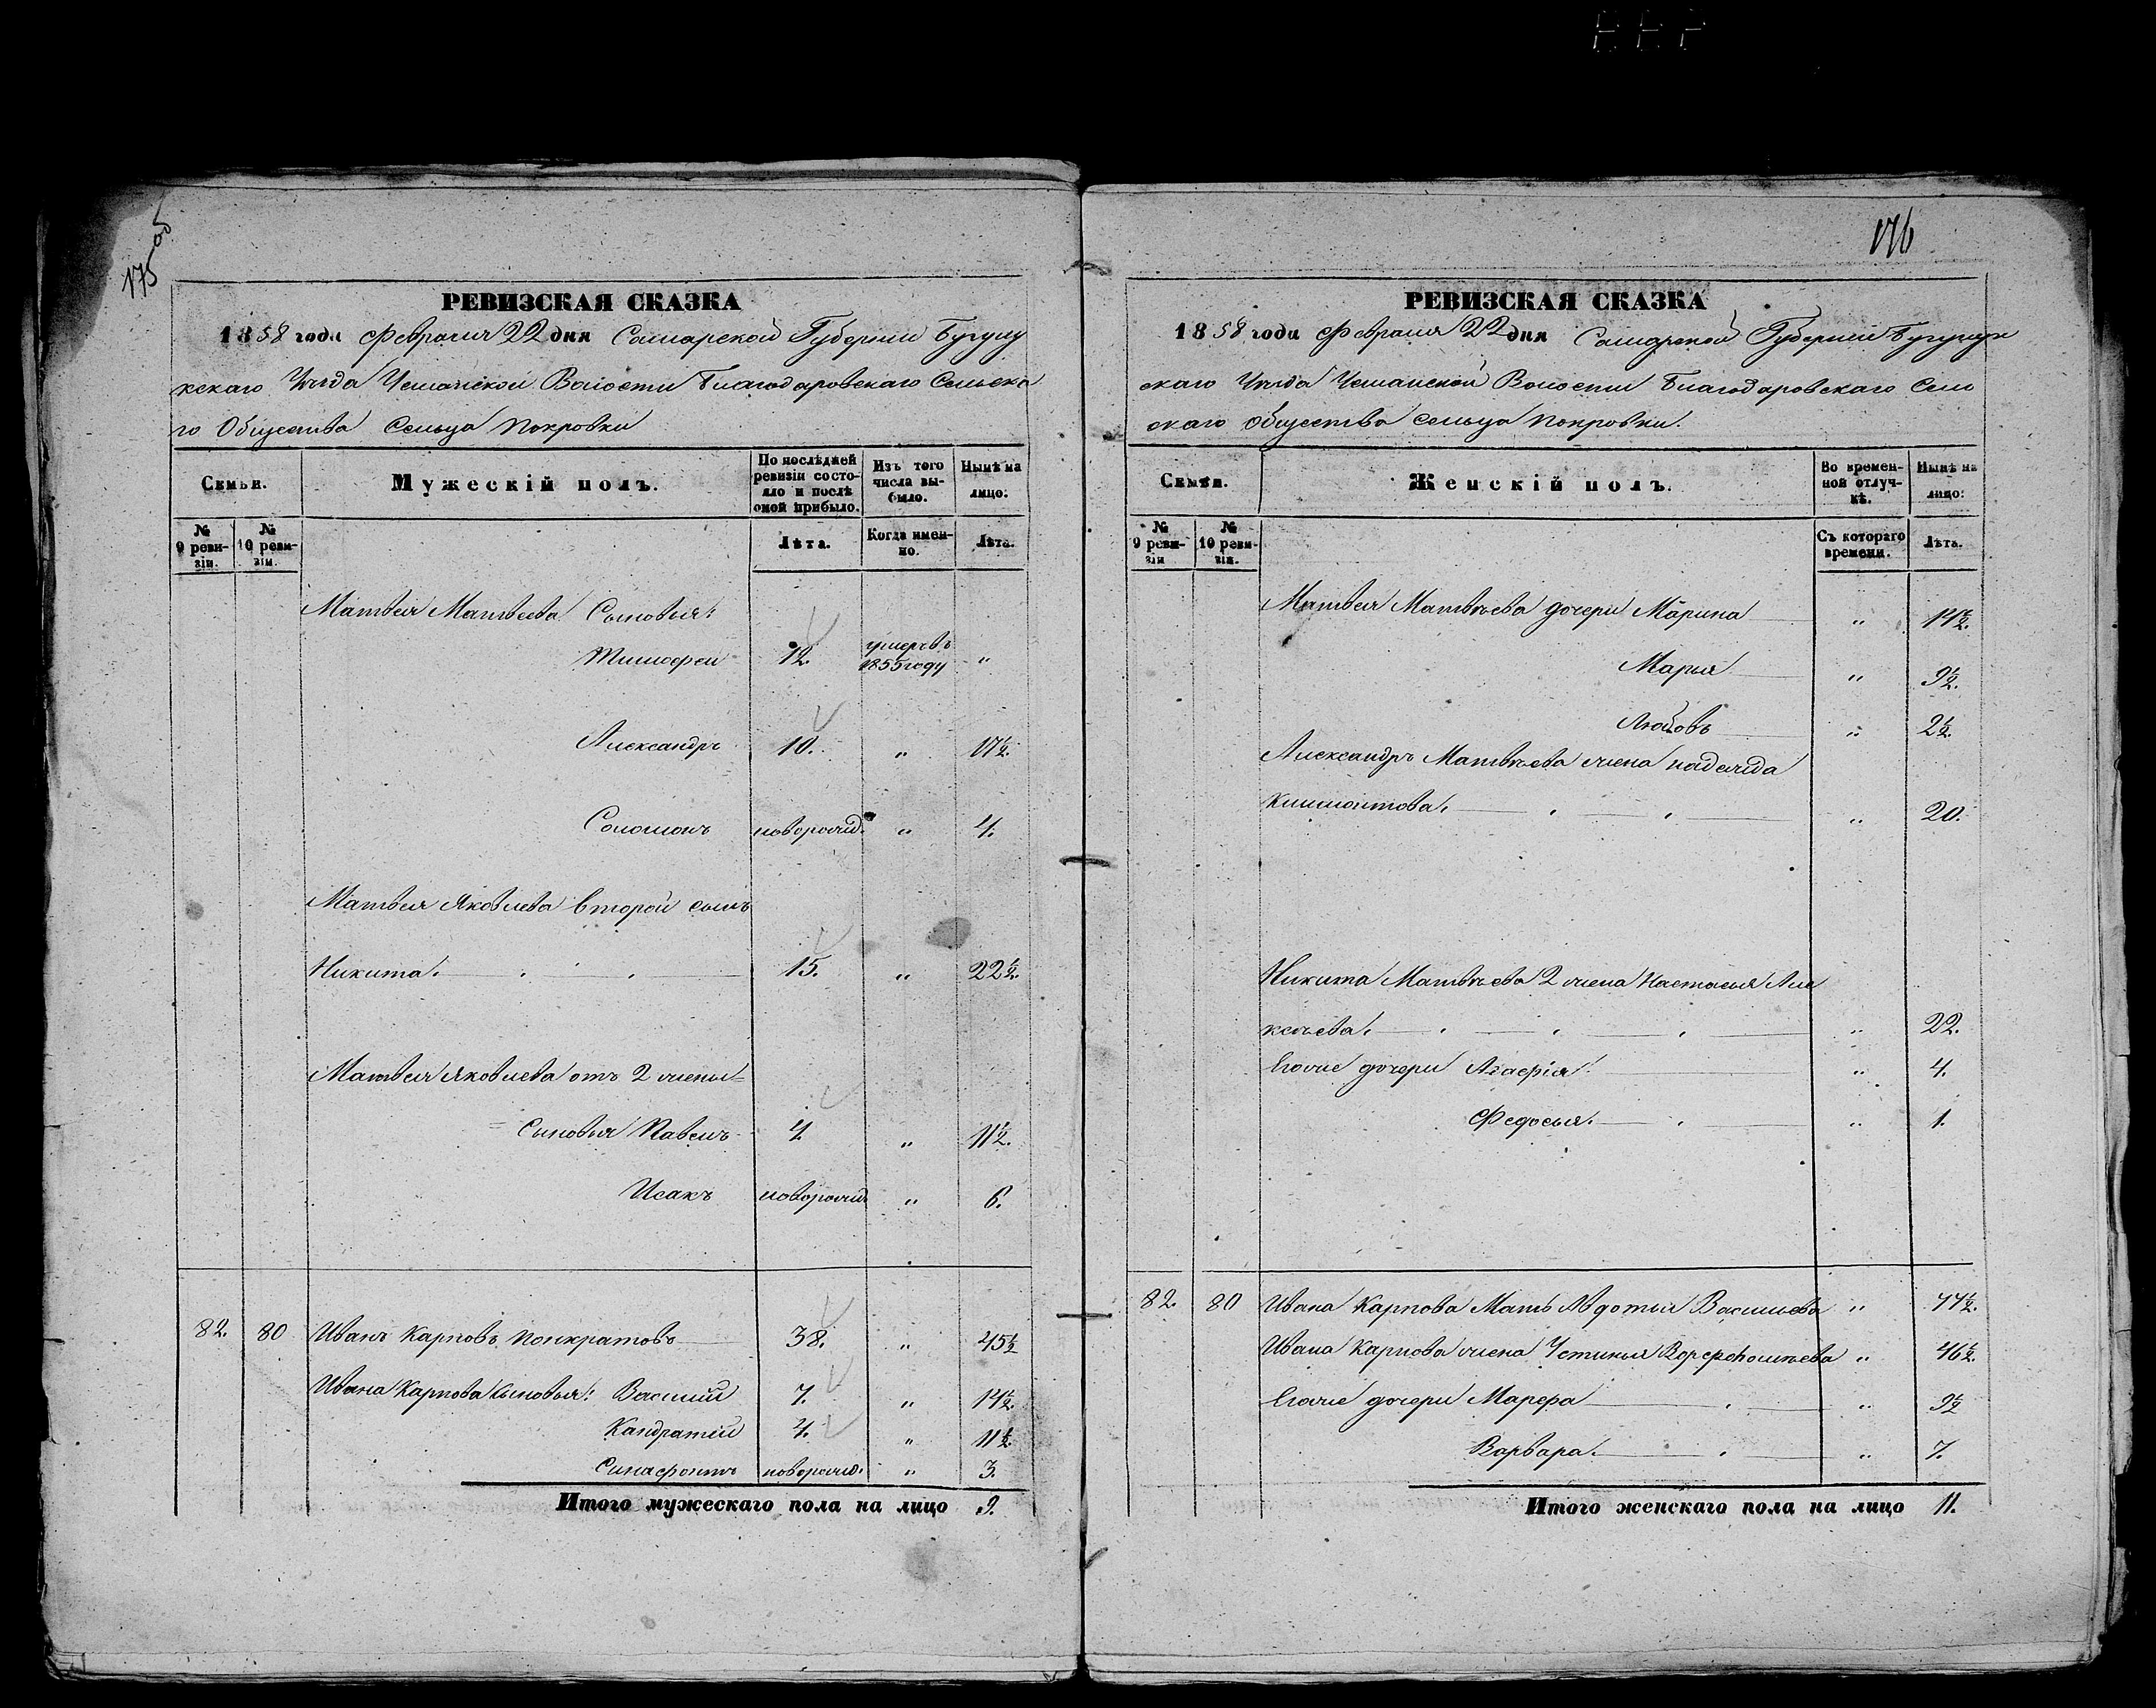 175
РЕВИЗСКАЯ СКАЗКА
1858 года Февраля 22 дня Самарской Губернии Бугуру
кскаго Уезда Чеманской Волости Благодаровскаго Сельска
го Общества Сельца Покровки
Семьи.
Мужескій полъ.
По послѣдней ревизіи состояло и послѣ оной прибыло.
Изъ того числа выбыло.
Нынѣ на лицо:
№ 9 ревизіи.
№ 10 ревизіи.
Лѣта.
Когда именно.
Лѣта.
Матвея Матвеева Сыновья:
Тимофей 12. умеръ въ 1855 году "
Александръ 10. " 17½.
Соломонъ новорожд. " 4.
Матвея Яковлева второй сынъ
Никита. 15. " 22½.
Матвея Яковлева отъ 2 жены=
Сыновья Павелъ 4. " 11½.
Исакъ новорожд " 6.
82. 80 Иванъ Карповъ Понкратовъ 38. " 45½
Ивана Карпова Сыновья: Василий 7. " 14½.
Кандратий 4. " 11½.
новорожд. " 3.
Итого мужескаго пола на лицо 9.
176
РЕВИЗСКАЯ СКАЗКА
1858 года Февраля 22 дня Самарской Губернии Бугурук
скаго Уезда Чеманской Волости Благодаровскаго Сель
скаго общества сельца Покровки.
Семьи.
Женскій полъ.
Во временной отлучкѣ.
Нынѣ на лицо:
№ 9 ревизіи
№ 10 ревизіи.
Съ котораго времени.
Лѣта.
Матвея Матвѣева дочери Марина " 14½.
Марья " 9½.
Любовъ " 2½.
Александръ Матвѣева жена надежда
" 20.
Никита Матвѣева 2 жена Настасья Але
ксѣева. " 22.
Ихъ дочери Агафія " 4.
Федосья. " 1.
82. 80 Ивана Карпова Мать Авдотья Василиева " 77½.
Ивана Карпова жена Устинья " 46½.
дочери Марфа " 9½
Варвара. " 7.
Итого женскаго пола на лицо 11.